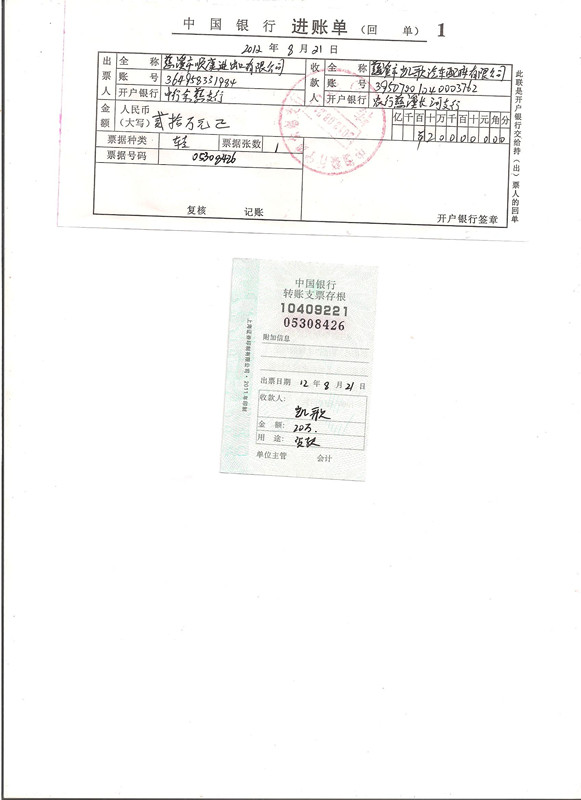 中国银行 进账单（回 单） 1
2012 年 8 月 21 日
出票人 全称 慈溪市 进出口有限公司 收款人 全称 慈溪市凯歌汽车配件有限公司
账号 364958331984 账号
开户银行 开户银行 农行慈溪长河支行
金额 人民币（大写） 贰拾万元正 亿千百十万千百十元角分
¥20000000
票据种类 转支 票据张数 1
票据号码 05308426
复核 记账 开户银行签章
此联是开户银行交给持（出）票人的回单
中国银行
转账支票存根
10409221
05308426
附加信息
出票日期 12 年 8 月 21 日
收款人：
凯歌
金 额： 20万
用 途： 货款
单位主管 会计